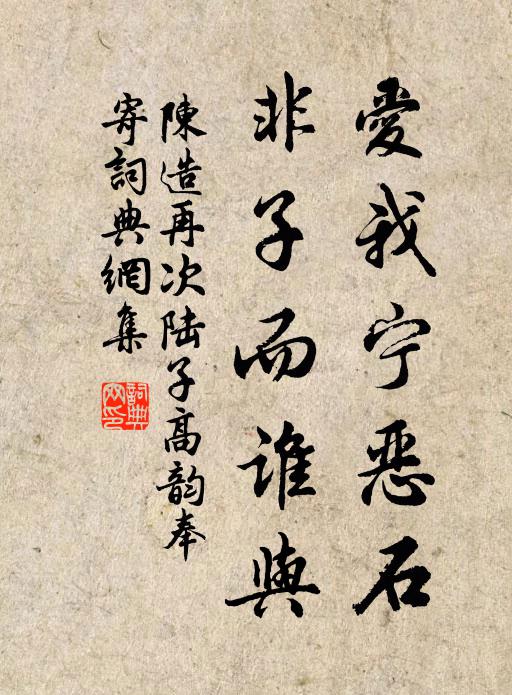 愛我宁恶石
非子而誰與
陳造再次陆子高韵奉
寄詞典網集
詞典
网印